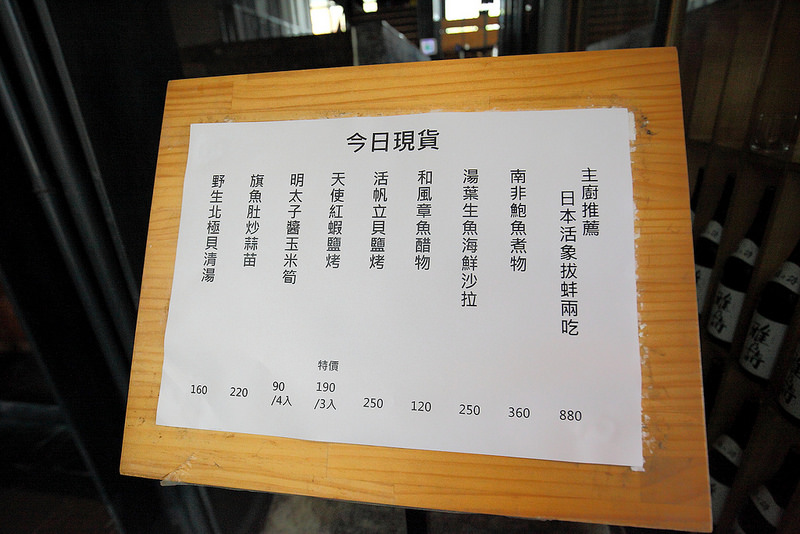 今日現貨
主廚推薦
日本活象拔蚌兩吃
880
南非鮑魚煮物
360
湯葉生魚海鮮沙拉
250
和風章魚醋物
120
活帆立貝鹽烤
250
天使紅蝦鹽烤
特價
190
/3入
明太子醬玉米筍
90
/4入
旗魚肚炒蒜苗
220
野生北極貝清湯
160